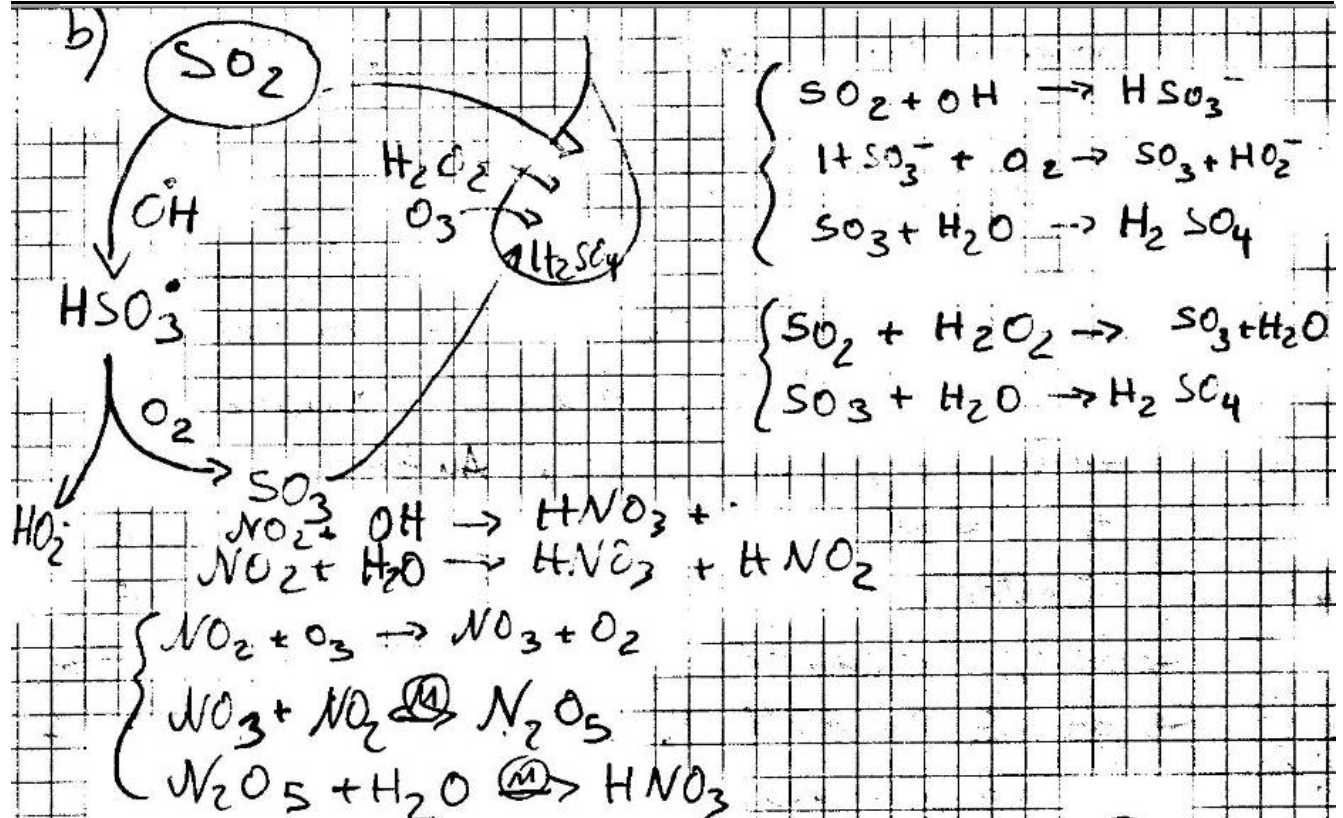 b)
SO₂
H₂O₂
O₃
H₂SO₄
ȮH
HSO₃•
O₂
HO₂•
SO₃
SO₂ + OH → HSO₃⁻
HSO₃⁻ + O₂ → SO₃ + HO₂⁻
SO₃ + H₂O → H₂SO₄
SO₂ + H₂O₂ → SO₃ + H₂O
SO₃ + H₂O → H₂SO₄
NO₂ + OH → HNO₃ +
NO₂ + H₂O → HNO₃ + HNO₂
NO₂ + O₃ → NO₃ + O₂
NO₃ + NO₂ (M)→ N₂O₅
N₂O₅ + H₂O (M)→ HNO₃